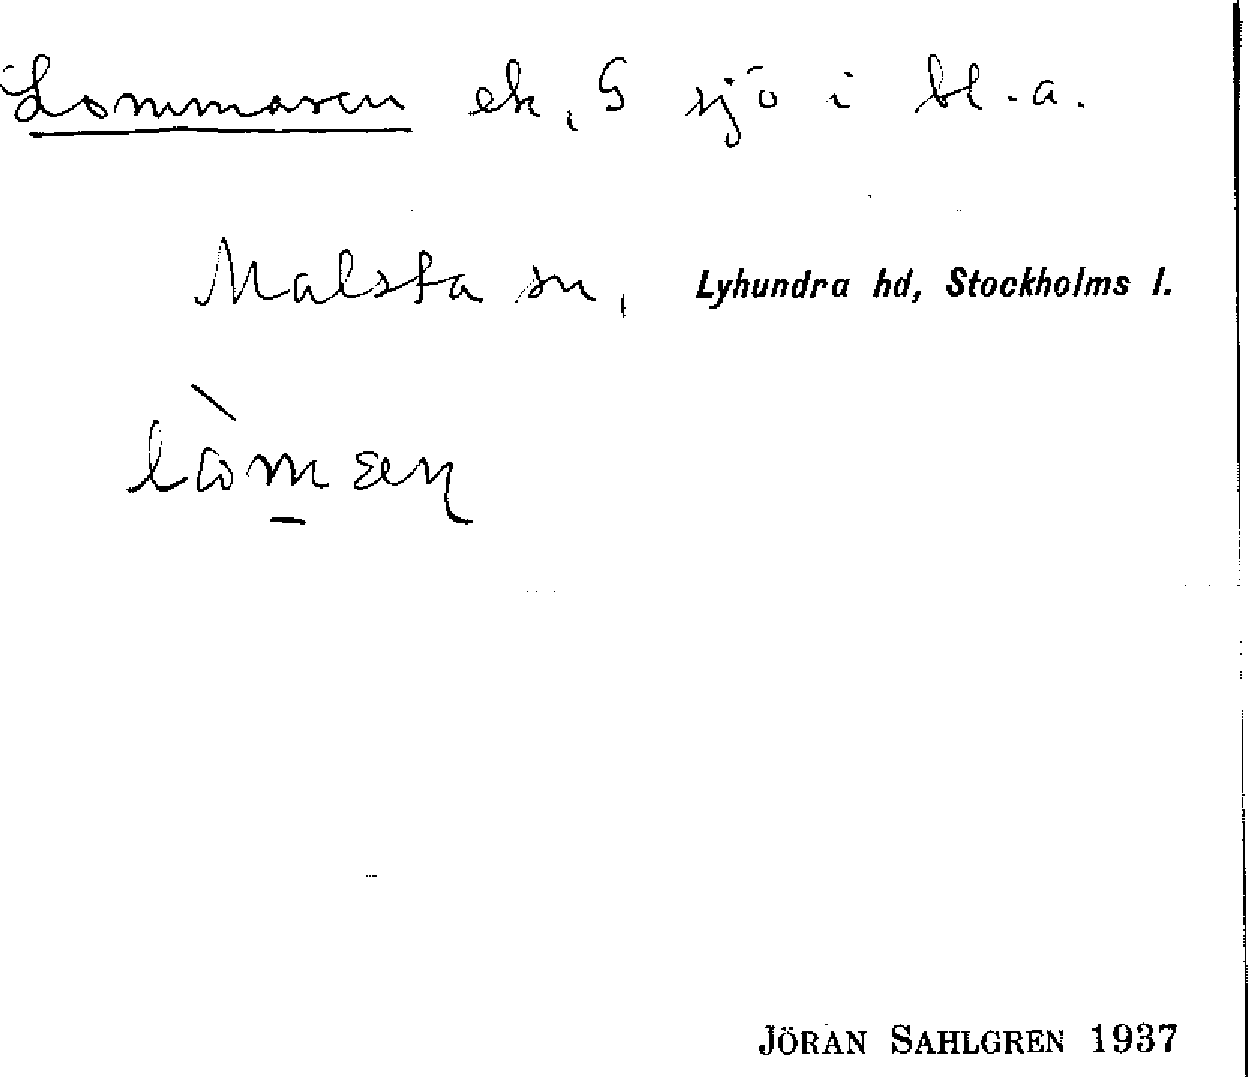 Lommaren ek, S sjö i bl.a.
Malsta sn, Lyhundra hd, Stockholms l.
JÖRAN SAHLGREN 1937